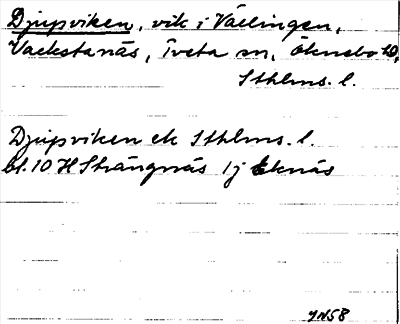 Djupviken, vik i Vällingen,
Vackstanäs, Tveta sn, Öknebo hd,
Sthlms. l.
Djupviken ek Sthlms. l.
bl. 10 H Strängnäs 1j Eknäs
JN58